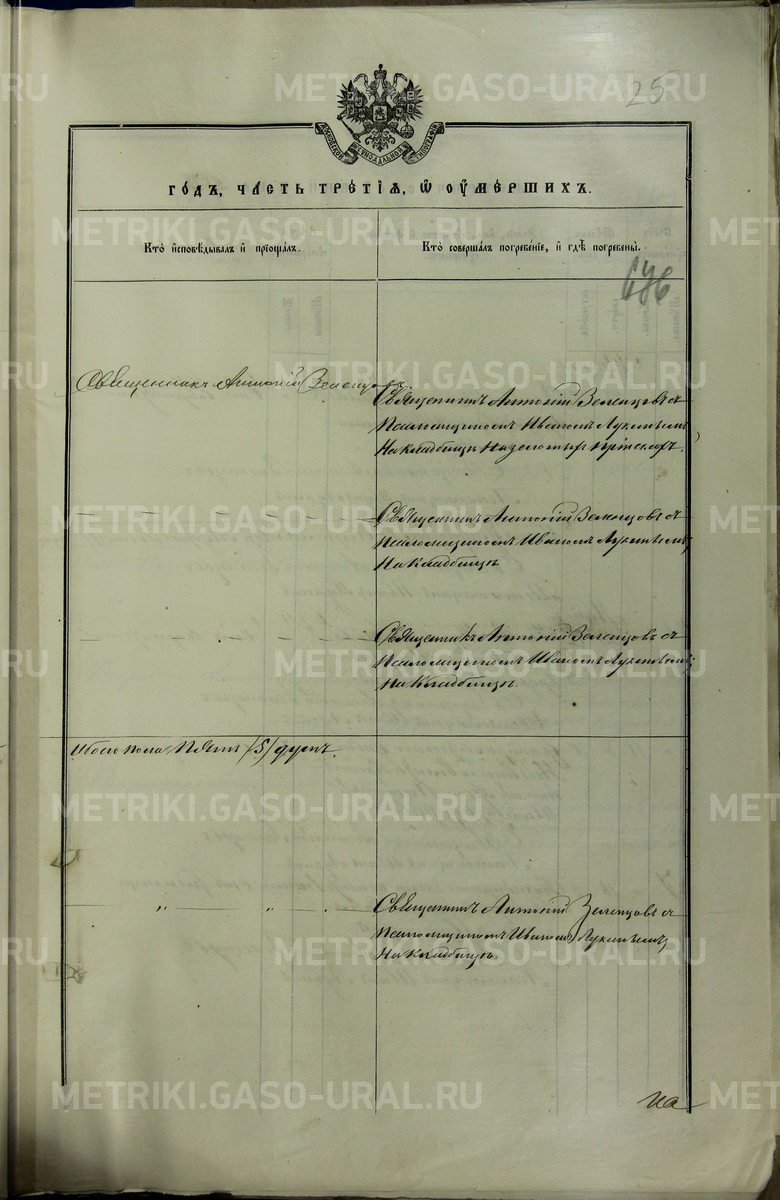 METRIKI.GASO-URAL.RU
25
МОСКОВСКОЙ СѴНОДАЛЬНОЙ ТИПОГРАФІИ
ГОДЪ, ЧАСТЬ ТРЕТІЯ, Ѿ ОУМЕРШИХЪ.
Кто исповѣдывалъ и пріощалъ.
Кто совершалъ погребеніе, и гдѣ погребены.
Священникъ Антоній Зеленцовъ
Священникъ Антоній Зеленцовъ съ
Псаломщикомъ Иваномъ
На кладбищѣ На золотыхъ пріискахъ.
Священникъ Антоній Зеленцовъ съ
Псаломщикомъ Иваномъ
На Кладбищѣ
Священникъ Антоній Зеленцовъ съ
Псаломщикомъ Иваномъ
На Кладбищѣ.
пола Пять /5/ душъ.
Священникъ Антоній Зеленцовъ съ
Псаломщикомъ Иваномъ
На Кладбищѣ.
на